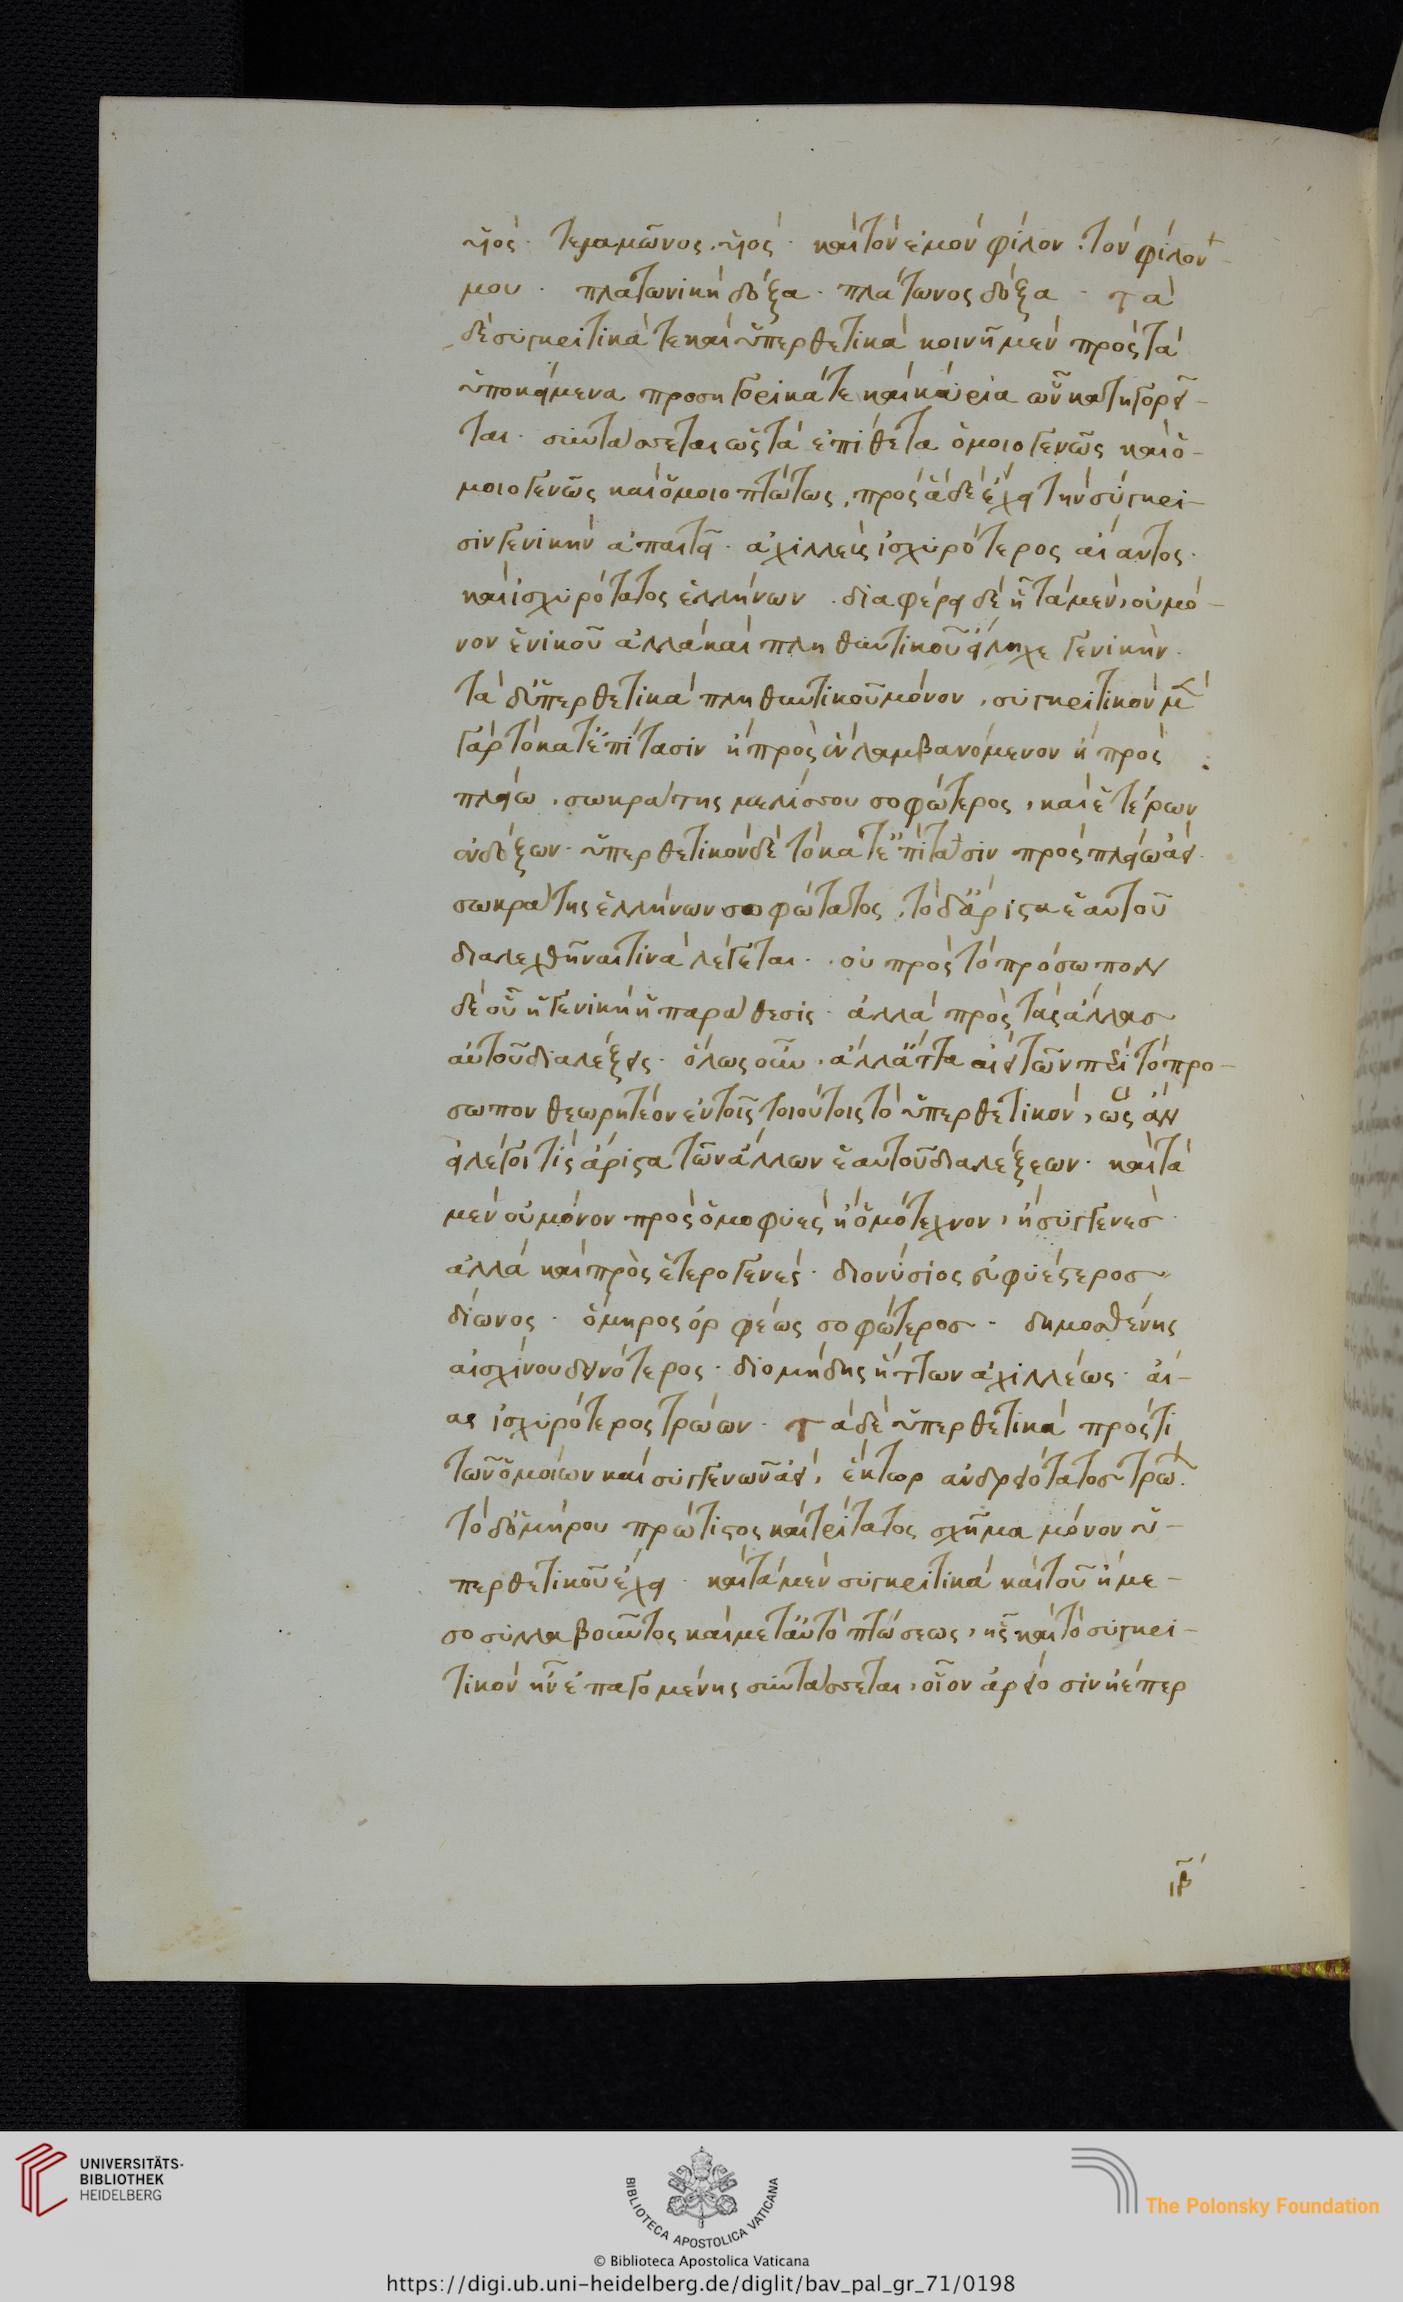 υἱός· τελαμῶνος υἱός· καὶ τὸν ἐμὸν φίλον. τὸν φίλον
μου· πλατωνικὴ δόξα· πλάτωνος δόξα· τὰ
δὲ συγκριτικά τε καὶ ὑπερθετικὰ κοινῇ μὲν πρὸς τὰ
ὑποκείμενα προσηγορικά τε καὶ κύρια ὧν κατηγορεῖ-
ται· συντάσσεται ὡς τὰ ἐπίθετα ὁμοιογενῶς καὶ ὁ-
μοιογενῶς καὶ ὁμοιοπτώτως, πρὸς ἃ δὲ ἔχει τὴν σύγκρι-
σιν γενικὴν ἀπαιτεῖ· ἀχιλλεὺς ἰσχυρότερος αἴαντος·
καὶ ἰσχυρότατος ἑλλήνων. διαφέρει δὲ ᾗ τὰ μὲν, οὐ μό-
νον ἑνικοῦ ἀλλὰ καὶ πληθυντικοῦ εἴληχε γενικὴν·
τὰ δ' ὑπερθετικὰ πληθυντικοῦ μόνον, συγκριτικὸν μὲν
γὰρ τὸ κατ' ἐπίτασιν ἢ πρὸς ἓν λαμβανόμενον ἢ πρὸς
πλείω, σωκράτης μελίσσου σοφώτερος, καὶ ἑτέρων
ἐνδόξων· ὑπερθετικὸν δὲ τὸ κατ' ἐπίτασιν πρὸς πλείω ἀεί·
σωκράτης ἑλλήνων σοφώτατος, τὸ δ' ἄριστα ἑαυτοῦ
διαλεχθῆναι τινὰ λέγεται· οὐ πρὸς τὸ πρόσωπον
δὲ οὖν ἡ γενικὴ ἡ παράθεσις· ἀλλὰ πρὸς τὰς ἄλλας
αὐτοῦ διαλέξεις· ὅλως οὖν,
σωπον θεωρητέον ἐν τοῖς τοιούτοις τὸ ὑπερθετικὸν, ὡς ἂν
εἰ λέγοι τίς ἄριστα τῶν ἄλλων ἑαυτοῦ διαλέξεων· καὶ τὰ
μὲν οὐ μόνον πρὸς ὁμοφυὲς ἢ ὁμότεχνον, ἢ συγγενὲς
ἀλλὰ καὶ πρὸς ἑτερογενές· διονύσιος εὐφυέστερος
δίωνος· ὅμηρος ὀρφέως σοφώτερος· δημοσθένης
αἰσχίνου δεινότερος· διομήδης ἥττων ἀχιλλέως· αἴ-
ας ἰσχυρότερος τρώων· τὰ δὲ ὑπερθετικὰ πρός τι
τῶν ὁμοίων καὶ συγγενῶν ἀεί, ἕκτωρ ἀνδρειότατος τρώων·
τὸ δ' ὁμήρου πρώτιστος καὶ τρίτατος σχῆμα μόνον ὑ-
περθετικοῦ ἔχει· καὶ τὰ μὲν συγκριτικὰ καὶ τοῦ ἢ με-
σοσυλλαβοῦντος καὶ μετ' αὐτὸ πτώσεως, ἧς καὶ τὸ συγκρι-
τικὸν ἦν ἐπαγομένης συντάσσεται, οἷον ἀρείοσιν ἠέπερ
ιβ
UNIVERSITÄTS-
BIBLIOTHEK
HEIDELBERG
BIBLIOTECA APOSTOLICA VATICANA
© Biblioteca Apostolica Vaticana
The Polonsky Foundation
https://digi.ub.uni-heidelberg.de/diglit/bav_pal_gr_71/0198